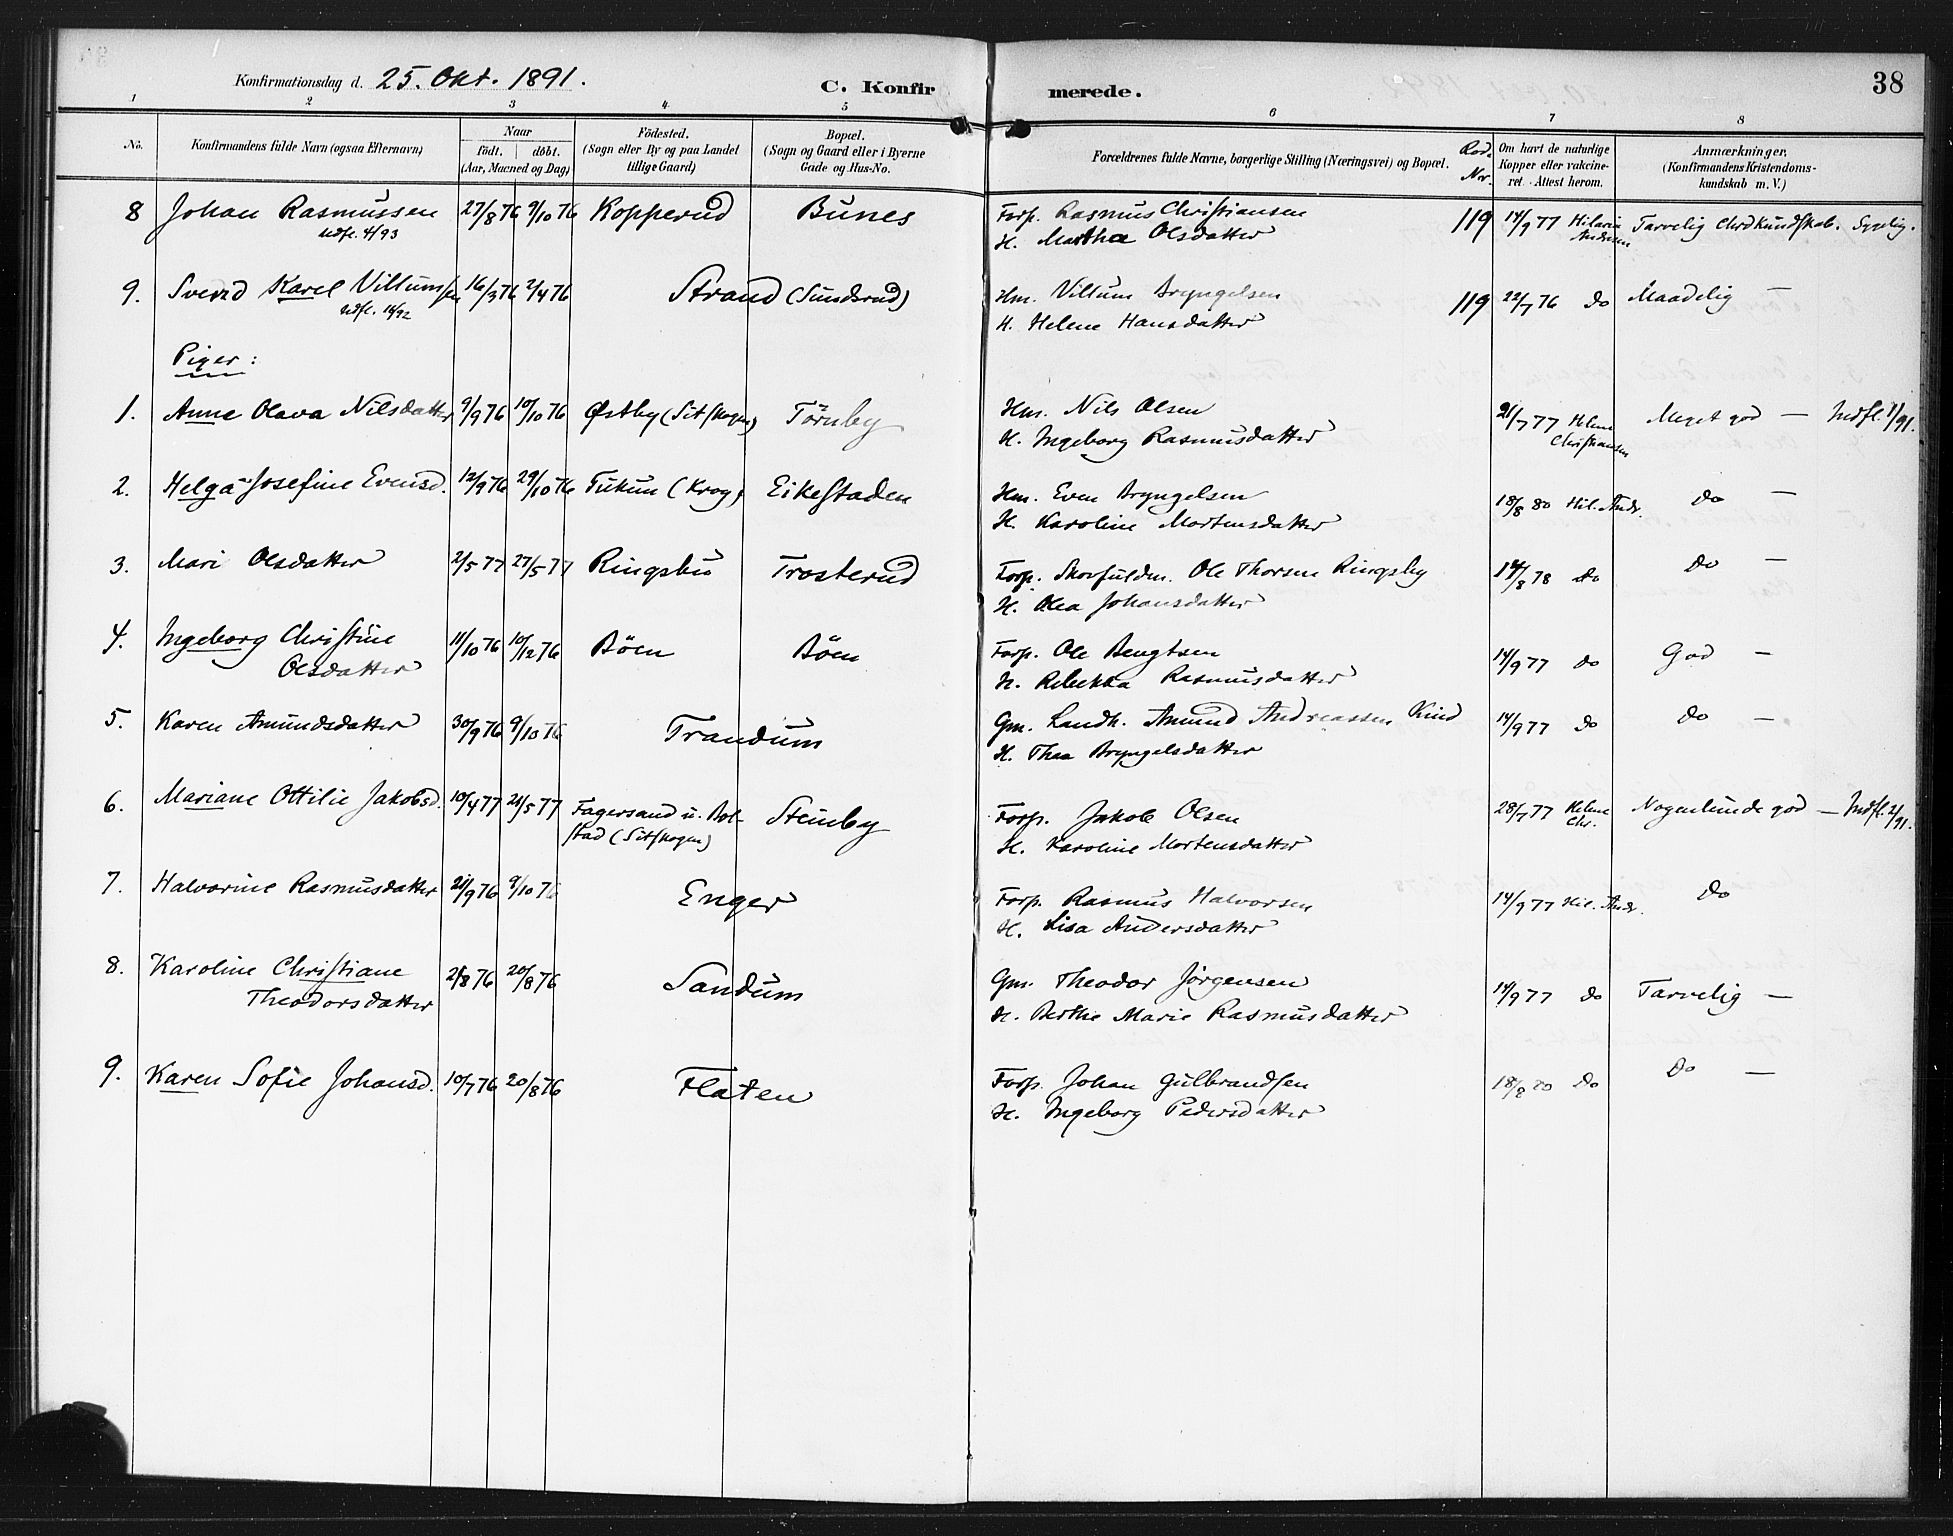 Konfirmationsdag d. 25. Okt. 1891.
C. Konfirmerede.
38
1 2 3 4. 5 6 7 8
No. Konfirmandens fulde Navn (ogsaa Efternavn) Naar födt. döbt. (Aar, Maaned og Dag) Födested. (Sogn eller By og paa Landet tillige Gaard) Bopæl. (Sogn og Gaard eller i Byerne Gade og Hus-No. Forældrenes fulde Navne, borgerlige Stilling (Næringsvei) og Bopæl. Om havt de naturlige Kopper eller vakcineret. Attest herom. Anmærkninger, (Konfirmandens Kristendomskundskab m. V.)
8 Johan Rasmussen 27/8 76 9/10 76 Kopperud Bunes Forp. Rasmus Christiansen 119 14/9 77 Hilaria Tarvelig Chrdkundskab. Sygelig.
Udfl. 4/93 H. Martha Olsdatter Andersen
9. Svend Karel Villumsen 16/3 76 2/4 76 Strand (Sundsrud) Hm. Villum Bryngelsen 119 22/7 76 do Maadelig —
H. Helene Hansdatter
Piger:
1. Anne Olava Nilsdatter 9/9 76 10/10 76 Østby (Sitskogen) Törnby Hm. Nils Olsen 21/7 77 Helene Meget god — Indfl. 1/91.
H. Ingeborg Rasmusdatter Christiansen
2. Helga Josefine Evensd. 12/9 76 29/10 76 Tukun (Krog) Eikestaden Hm. Even Bryngelsen 18/8 80 Hil. Andr. do —
H. Karoline Mortensdatter
3. Mari Olsdatter 2/5 77 27/5 77 Ringsbu Trosterud Forp. Ole Thorsen Ringsby 14/8 78 do do —
H. Olea Johansdatter
4. Ingeborg Christine 11/10 76 10/12 76 Böen Böen Forp. Ole Bengtsen 14/9 77 do God —
Olsdatter H. Rebekka Rasmusdatter
5. Karen Amundsdatter 30/9 76 9/10 76 Trandum Gm. Landh. Amund Andreassen Kind 14/9 77 do do —
H. Thea Bryngelsdatter
6. Mariane Ottilie Jakobsd. 10/4 77 21/5 77 Fagersand u. Bolstad (Sitskogen) Steinby Forp. Jakob Olsen 28/7 77 Helene Chr. Nogenlunde god — Indfl. 2/91.
H. Karoline Mortensdatter
7. Halvorine Rasmusdatter 21/9 76 9/10 76 Enger Forp. Rasmus Halvorsen 14/9 77 Hil. Andr. do
H. Lisa Andersdatter
8. Karoline Christiane 2/8 76 20/8 76 Sandum Gm. Theodor Jørgensen 14/9 77 do Tarvelig —
Theodorsdatter H. Berthe Marie Rasmusdatter
9. Karen Sofie Johansd. 10/7 76 20/8 76 Flaten Forp. Johan Gulbrandsen 18/8 80 do do —
H. Ingeborg Pedersdatter